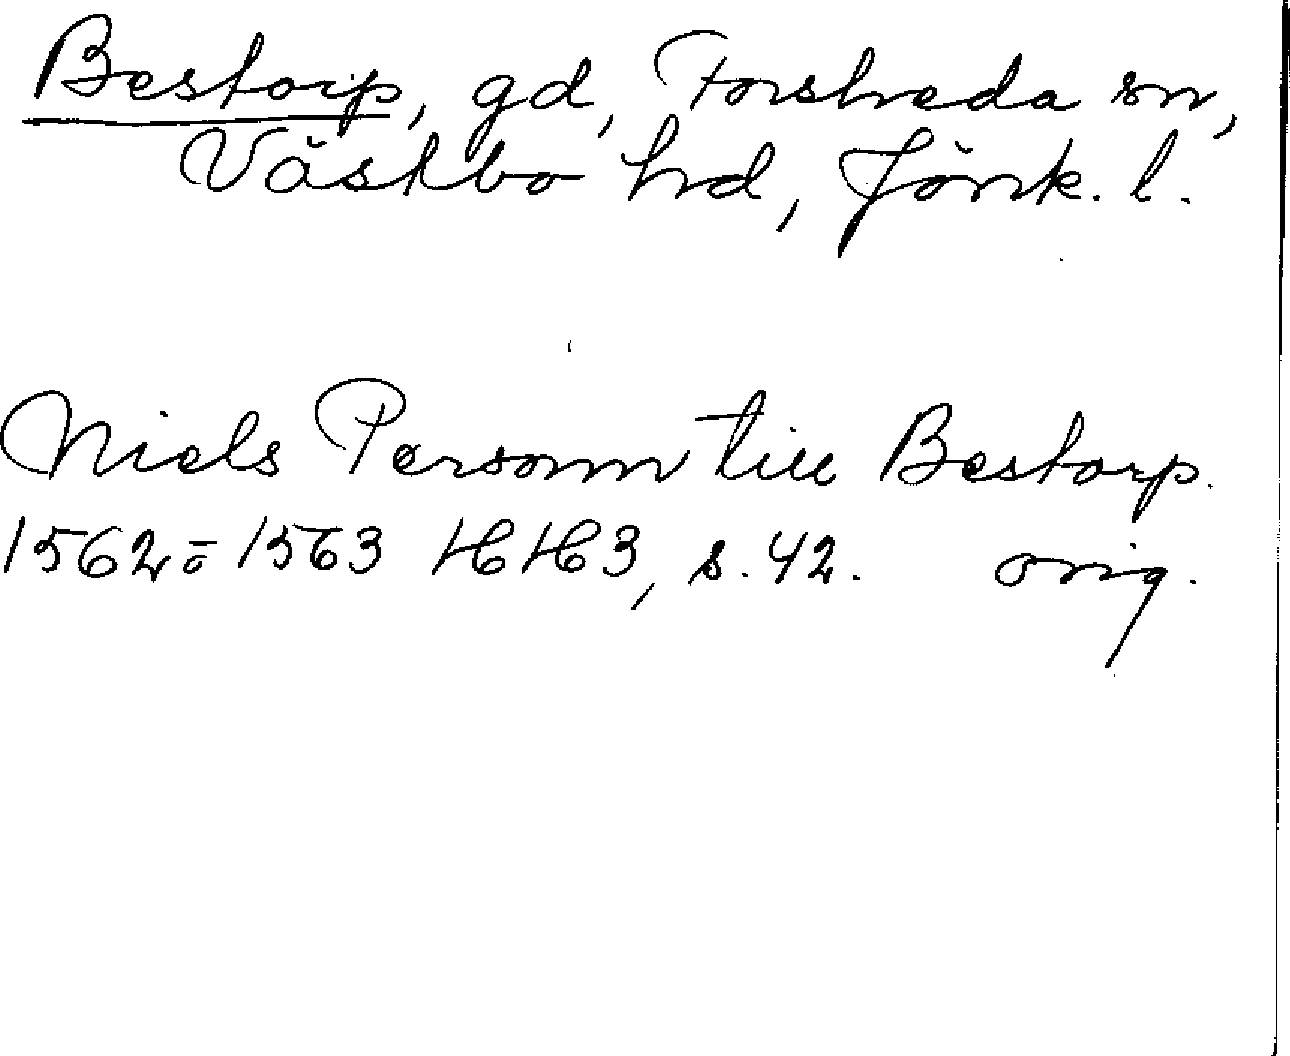 Bestorp, gd, Forsheda sn,
Västbo hd, Jönk. l.
Niels Personn till Bestorp.
1562 o 1563 HH 3, s. 42. orig.